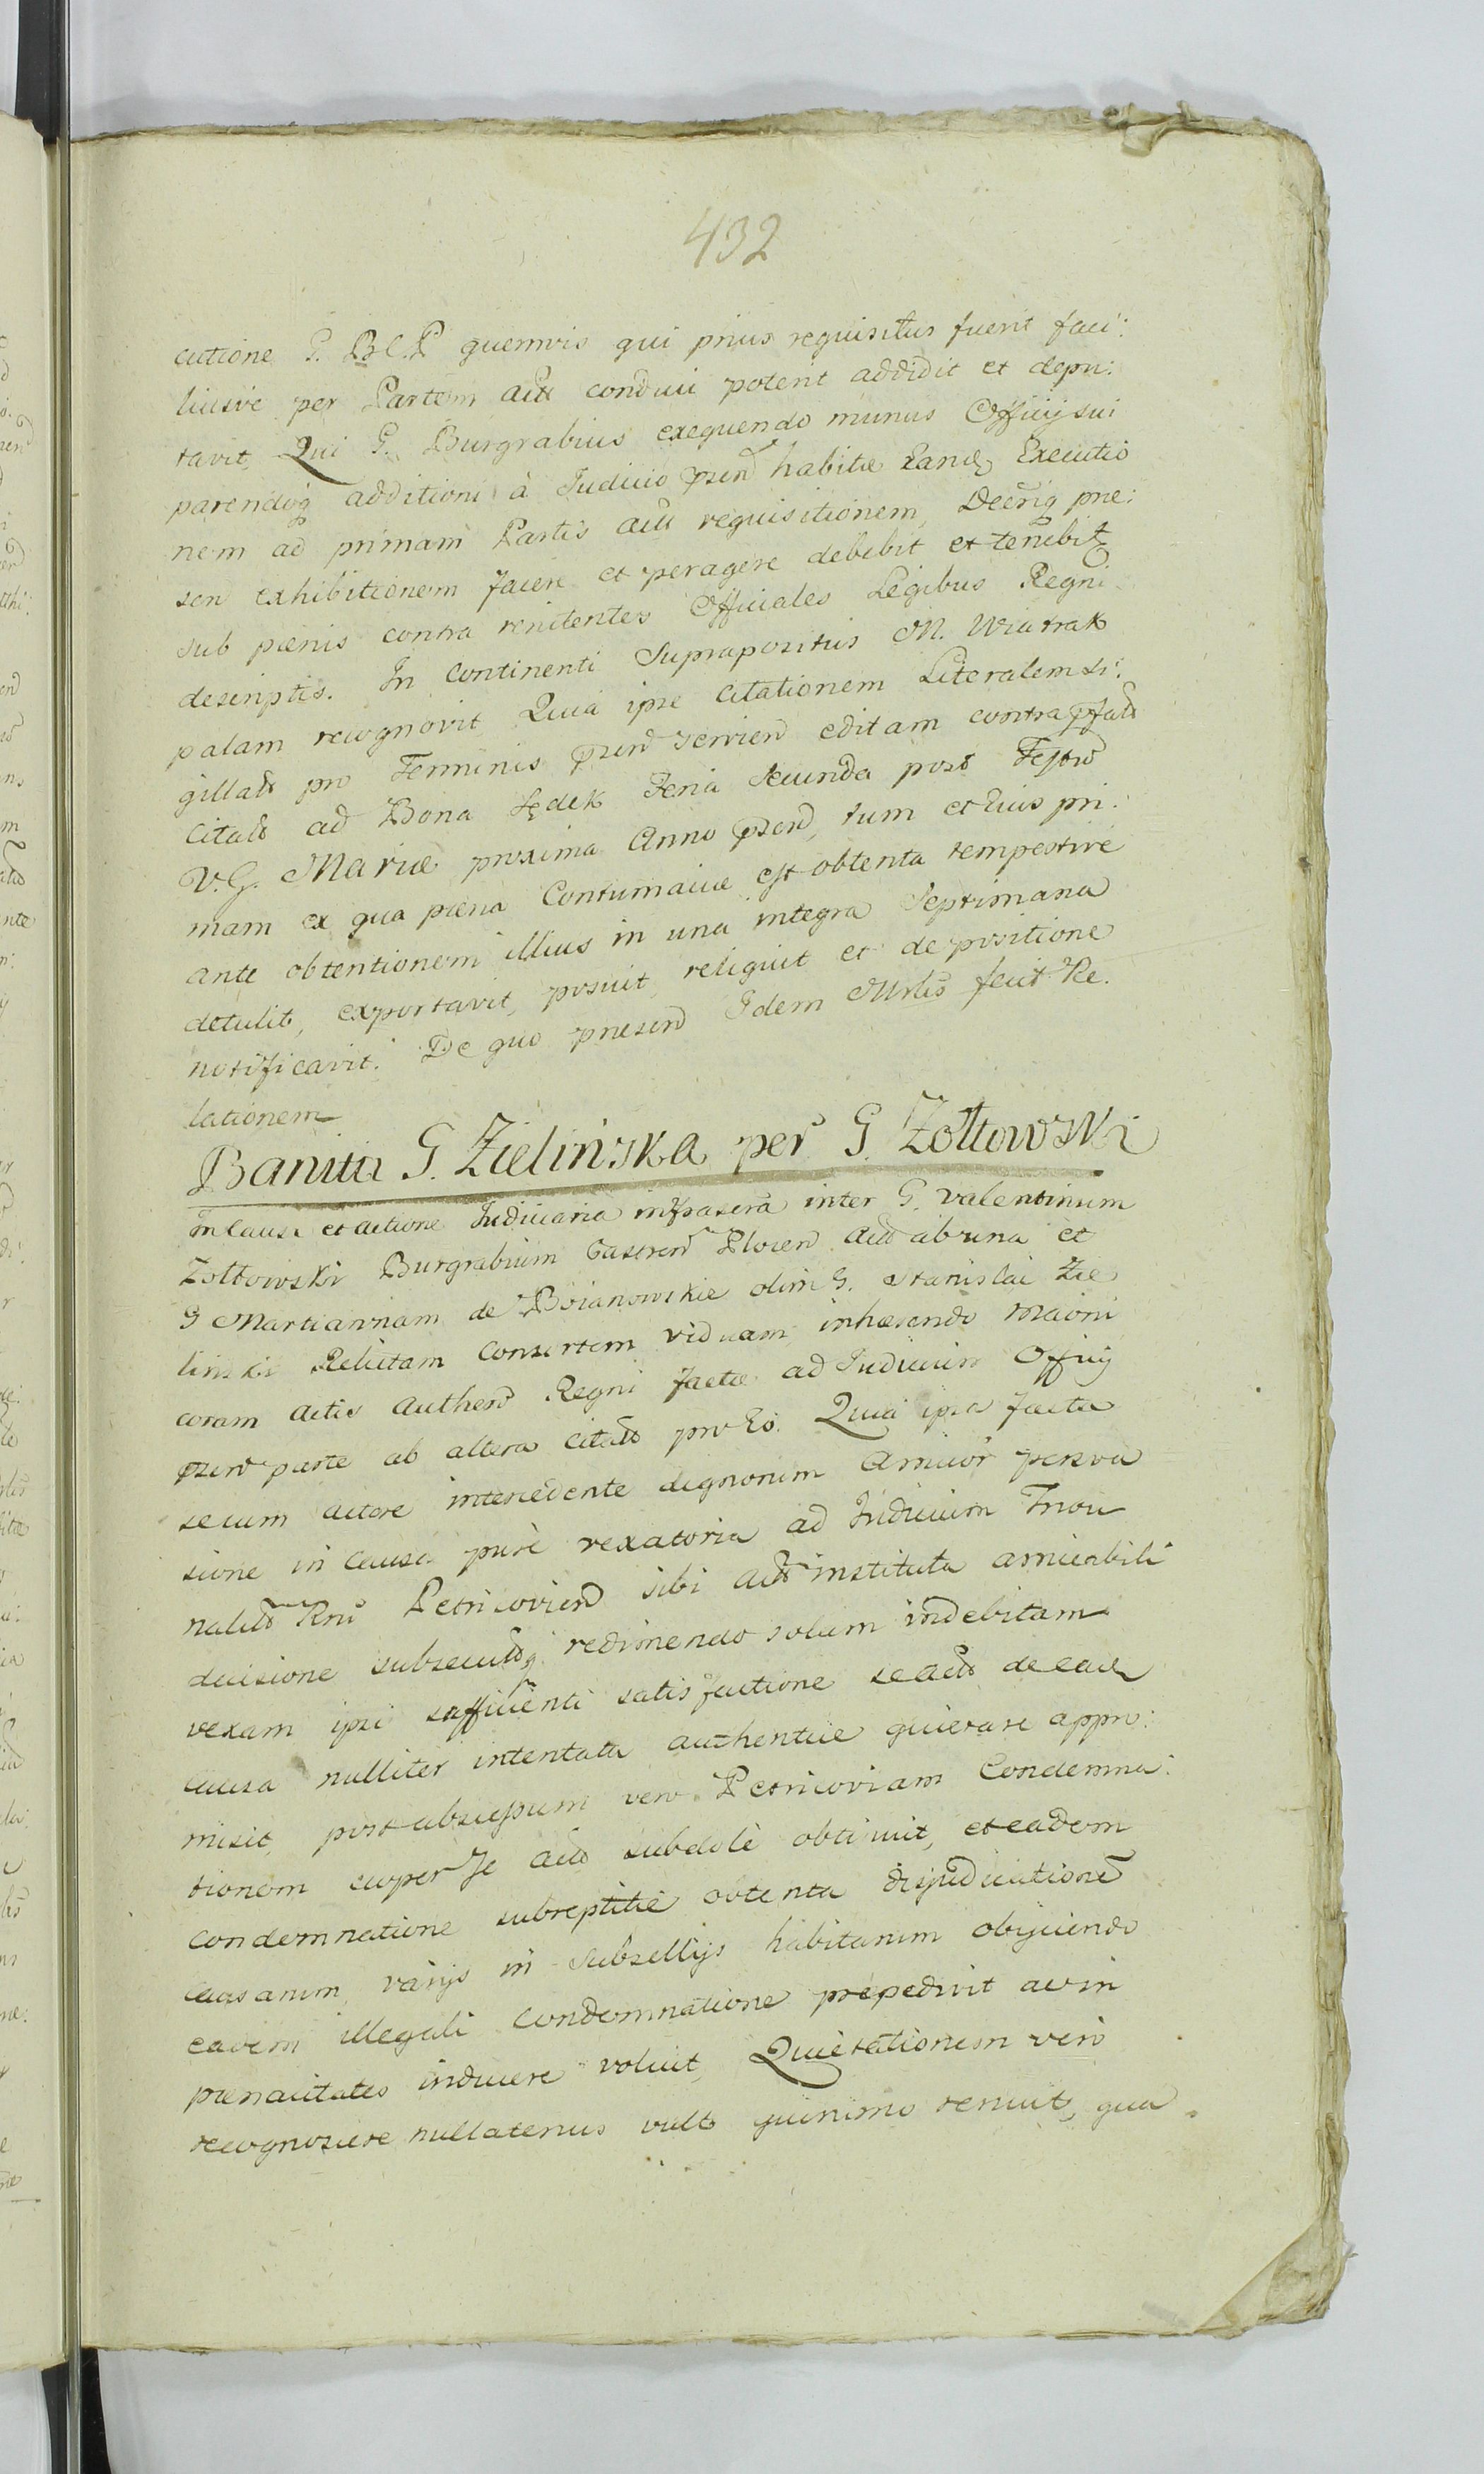 432
cutione G. B C. P quemvis qui prius requisitus fuerit faci:
liusve per Partem act conduci poterit addidit et depu:
tavit, Qui G. Burgrabius exequendo munus Officij sui
parendoq additioni à Judicio pzen habitæ Banæ Executio
nem ad primam Partis act requisitionem, Decriq præ:
sen exhibitionem facere et peragere debebit et tenebit
sub pœnis contra renitentes Officiales Legibus Regni
descriptis. In continenti Suprapositus M. Wiatrak
palam recognovit Quia ipse Citationem Literalem si:
gillat pro Terminis pzen servien editam contra pfat
Citat ad Bona Sędek Feria Secunda post Festo
V. G. Mariæ proxima Anno pzen, tum et Eius pri:
mam ex qua pæna Contumaciæ est obtenta tempestive
ante obtentionem illius in una integra Septimana
detulit, exportavit, posuit, reliquit et de positione
notificavit. De quo præsen Idem Mrlis fecit Re.
lationem
Banita G. Zielińska per G. Zołtowski
In Causa et actione Judiciaria infrascra inter G. Valentinum
Zołtowski Burgrabium Castren Plocen act ab una et
G Martiannam de Boianowskie olim G. Stanislai Zie
linski Relictam Consortem viduam inhærendo
coram Actis Authen Regni factæ ad Judicium Officij
pzen parte ab altera Citat pro Eo. Quia ipsa facta
secum actore intercedente dignorum Amicor persva
sione in Causa purè vexatoria ad Judicium
nalit Rni Petricovien sibi act instituta amicabili
decisione subsecutaq redimendo solum indebitam
vexam ipsi sufficienti satisfactione se act de eade
causa nulliter intentata authentice quietare appro:
misit, post abscessum vero Petricoviam Condemna:
tionem super Se act subdole obtinuit, et eadem
condemnatione subreptitie obtenta disjudicatione
Causarum, varijs in Subsellijs habitarum obijciendo
eadem illegali condemnatione præpedivit ac in
pænalitates inducere voluit, Quietationem vero
recognoscere nullatenus vult quinimo renuit, qua